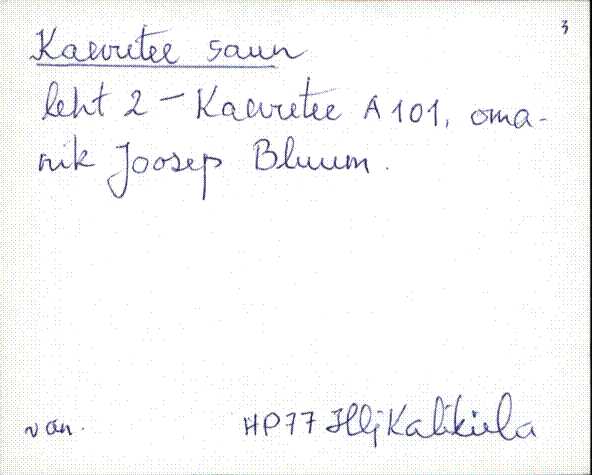 3
Kaevretee saun
leht 2 - Kaevretee A 101, oma-
nik Joosep Bluum.
HP77 Hlj Kaliküla